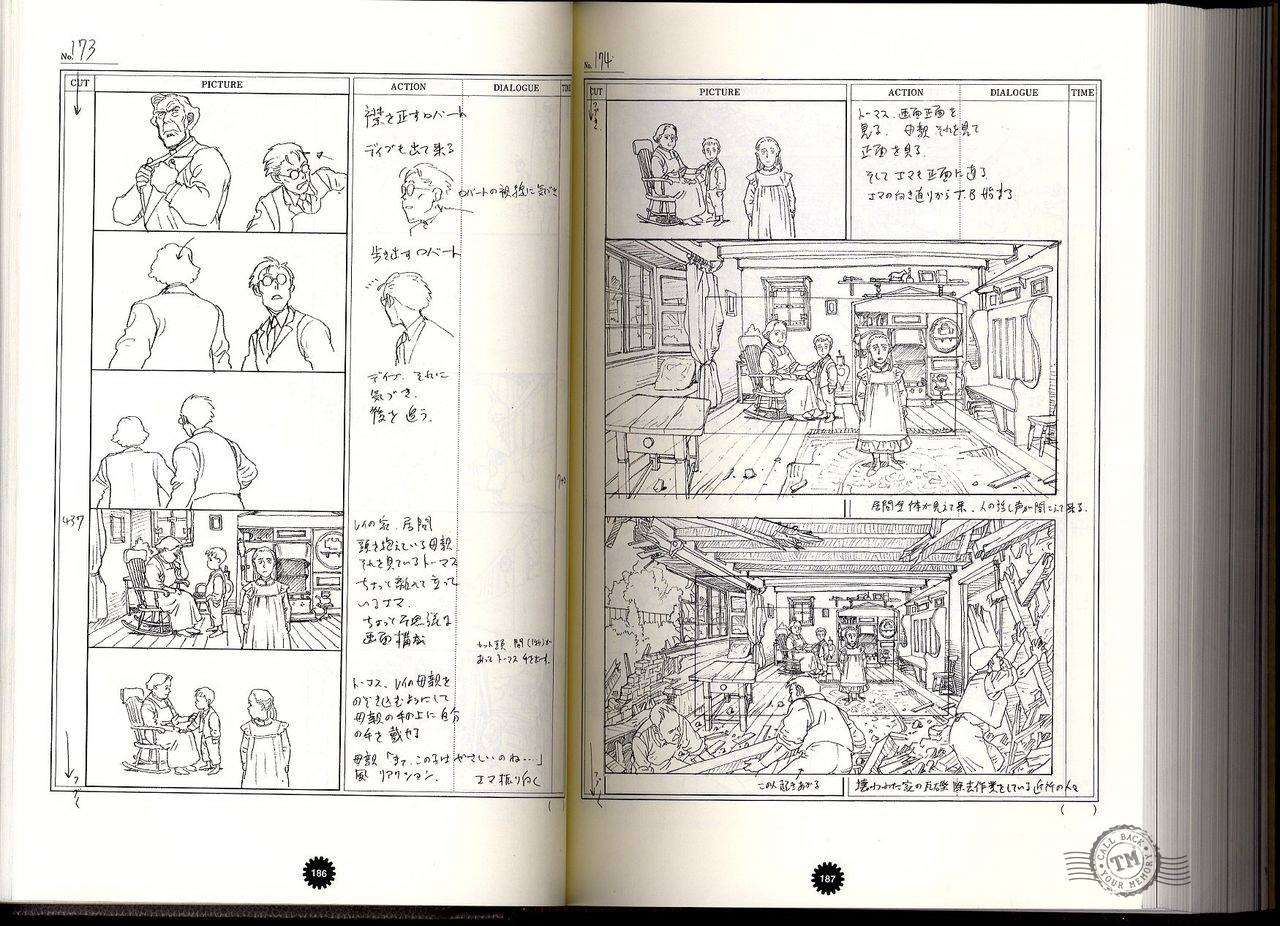 No. 173
CUT
PICTURE
ACTION
DIALOGUE
襟を正すロバート
デイブも出て来る
ロバートの視線に気づき
歩き出すロバート
デイブ、それに
気づき、
後を追う。
437
レイの家、居間
頭を抱えている母親
それを見ているトーマス
ちょっと離れて立って
いるエマ、
ちょっと不思議な
画面構成
トーマス、レイの母親を
のぞき込むようにして
母親の手の上に自分
の手を載せる
母親「まァ、この子はやさしいのね…」
風 リアクション、
エマ振り向く
つづく
186
No. 174
CUT
PICTURE
ACTION
DIALOGUE
TIME
つづき
トーマス、画面正面を
見る、母親それを見て
正面を見る、
そしてエマも正面に直る
エマの向き直りからT.B始まる
居間全体が見えて来、人の話し声が聞こえて来る。
この人起きあがる
壊われた家の瓦礫除去作業をしている近所の人々
つづく
187
CALL BACK
TM
YOUR MEMORY